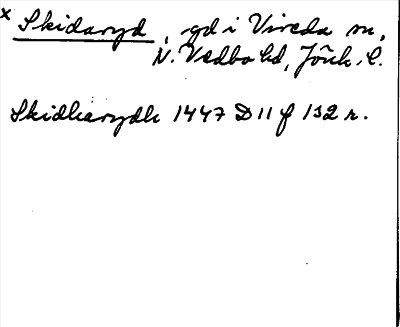 x Skidaryd, gd i Vireda sn,
N. Vedbo hd, Jönk. l.
Skidharydh 1447 D 11 f 132 r.